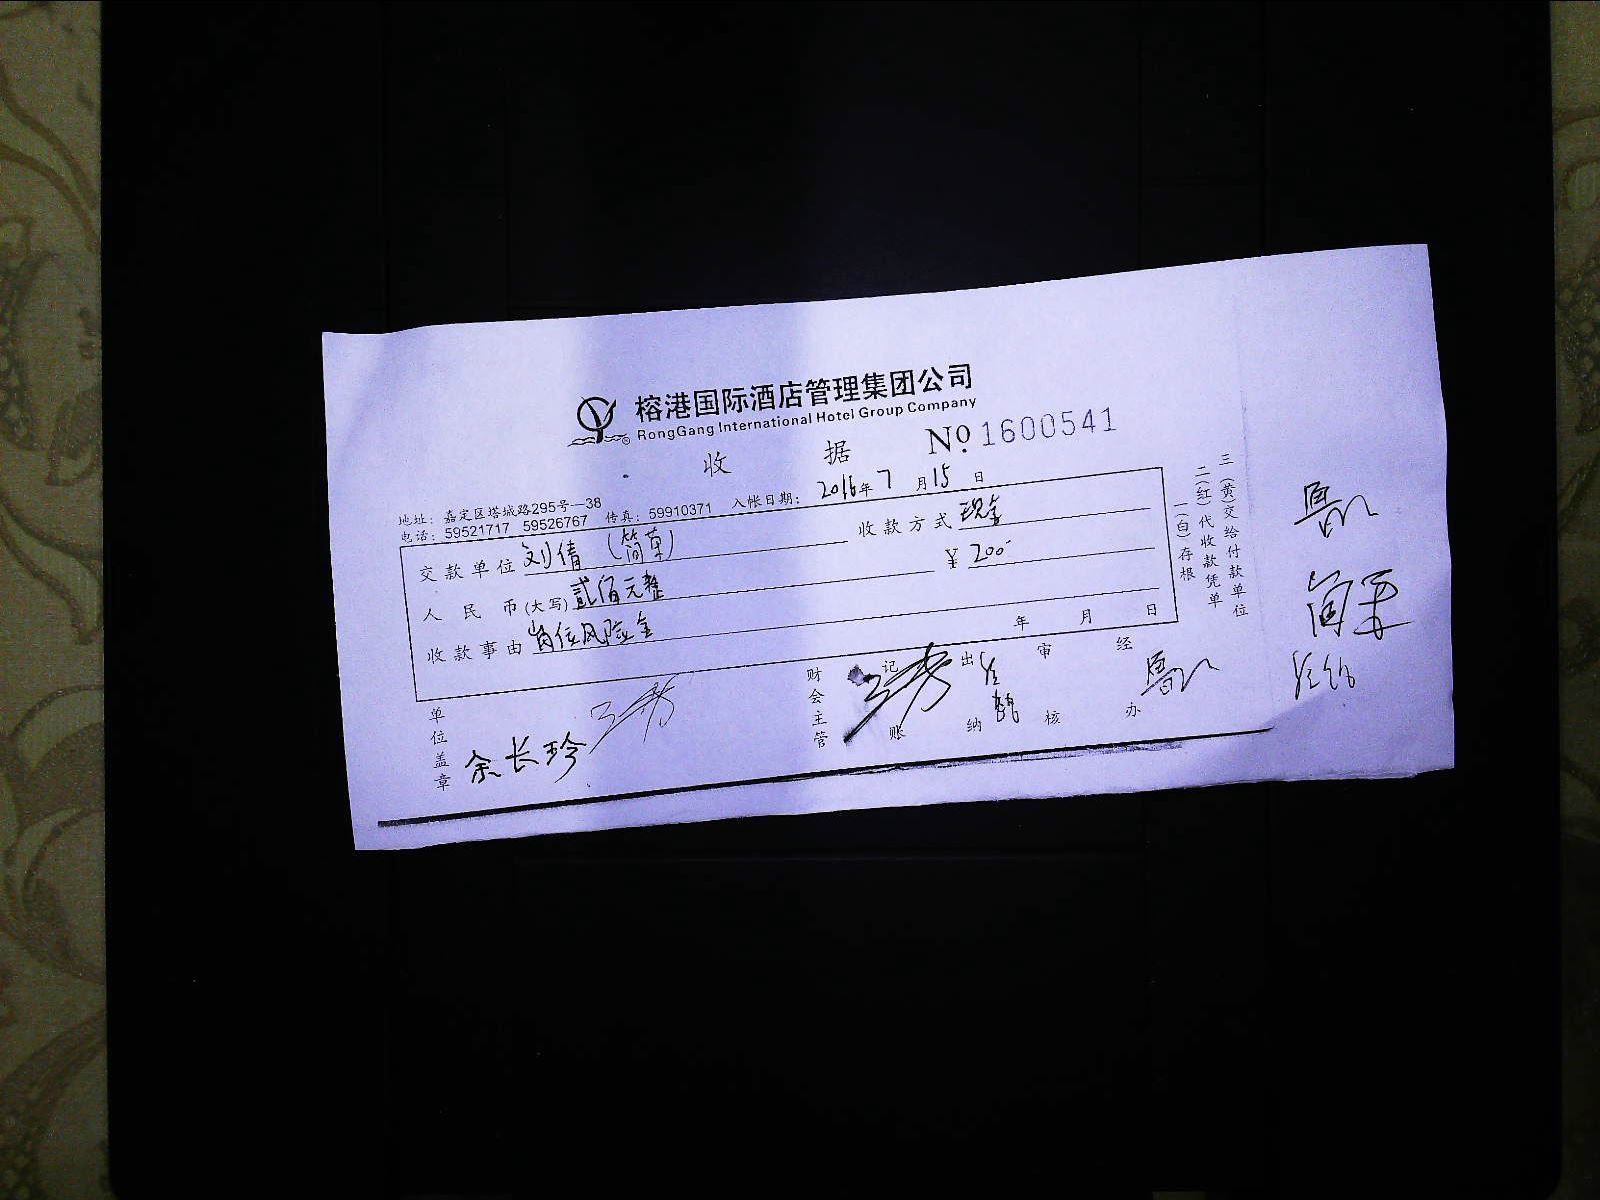 榕港国际酒店管理集团公司
RongGang International Hotel Group Company
收 据 No. 1600541
地址：嘉定区塔城路295号—38
电话：59521717 59526767 传真：59910371 入帐日期：2016年7月15日
交款单位 刘倩（简单） 收款方式 现金
人民币(大写) 贰佰元整 ¥200
收款事由 岗位风险金
年 月 日
单位盖章 余长珍 财会主管 记账 出纳 审核 经办
一(白)存根
二(红)代收款凭单
三(黄)交给付款单位